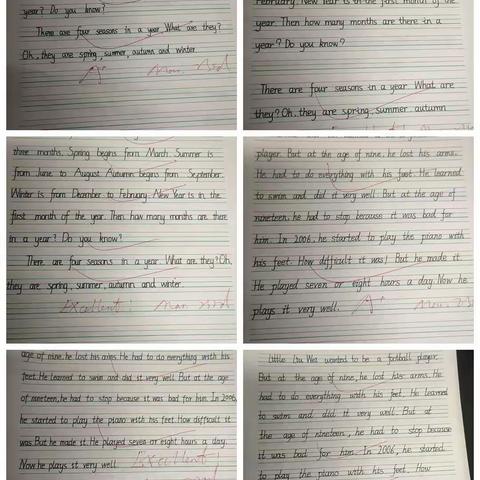 year? Do you know?
There are four seasons in a year. What are they?
Oh, they are spring, summer, autumn and winter.
A+
February. New Year is in the first month of the
year. Then how many months are there in a
year? Do you know?
There are four seasons in a year. What are
they? Oh, they are spring, summer. autumn
three months. Spring begins from March. Summer is
from June to August. Autumn begins from September.
Winter is from December to February. New Year is in the
first month of the year. Then how many months are there
in a year? Do you know?
There are four seasons in a year. What are they? Oh,
they are spring, summer, autumn and winter.
Excellent!
player. But at the age of nine, he lost his arms.
He had to do everything with his feet. He learned
to swim and did it very well. But at the age of
nineteen, he had to stop because it was bad for
him. In 2006, he started to play the piano with
his feet. How difficult it was! But he made it.
He played seven or eight hours a day. Now he
plays it very well.
A+
age of nine, he lost his arms. He had to do everything with his
feet. He learned to swim and did it very well. But at the age
of nineteen, he had to stop because it was bad for him. In 2006,
he started to play the piano with his feet. How difficult it
was. But he made it. He played seven or eight hours a day.
Now he plays it very well.
Excellent!
Little Liu Wei wanted to be a football player.
But at the age of nine, he lost his arms. He
had to do everything with his feet. He learned
to swim and did it very well. But at
the age of nineteen, he had to stop because
it was bad for him. In 2006, he started
to play the piano with his feet. How